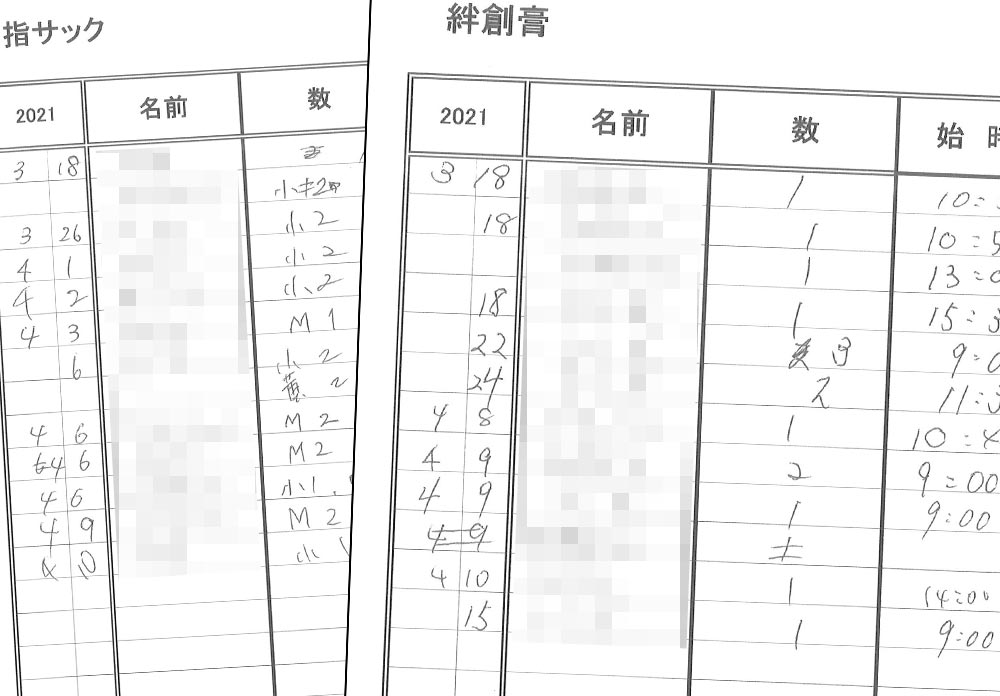 指サック
2021 名前 数
3 18
小 2
3 26 小 2
4 1 小 2
4 2 小 2
4 3 M 1
6 小 2
2
4 6 M 2
4 6 M 2
4 6 小 1
4 9 M 2
4 10 小 1
絆創膏
2021 名前 数 始 時
3 18 1 10:
18 1 10:5
1 13:0
18 1 15:3
22 3 9:0
24 2 11:3
4 8 1 10:4
4 9 2 9:00
4 9 1 9:00
4 9 1
4 10 1 14:00
15 1 9:00